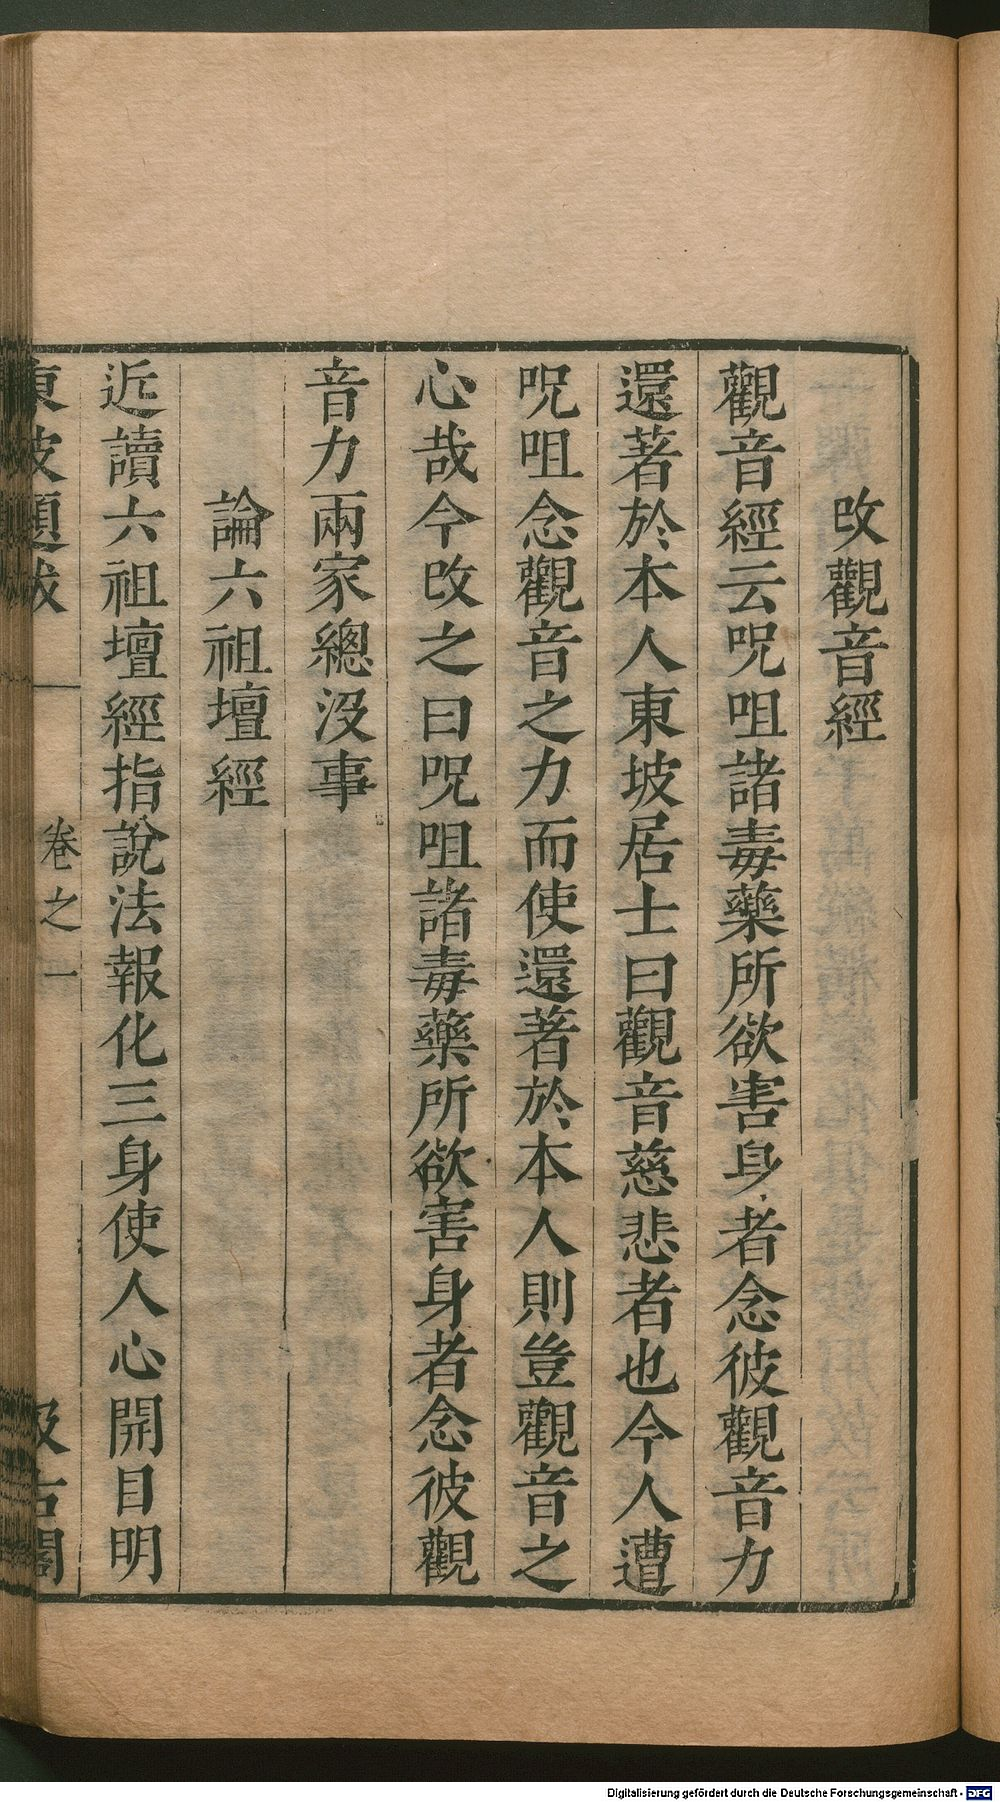 改觀音經
觀音經云呪咀諸毒藥所欲害身者念彼觀音力
還著於本人東坡居士曰觀音慈悲者也今人遭
呪咀念觀音之力而使還著於本人則豈觀音之
心哉今改之曰呪咀諸毒藥所欲害身者念彼觀
音力兩家總沒事
論六祖壇經
近讀六祖壇經指說法報化三身使人心開目明
東坡題跋
卷之一
汲古閣
Digitalisierung gefördert durch die Deutsche Forschungsgemeinschaft - DFG